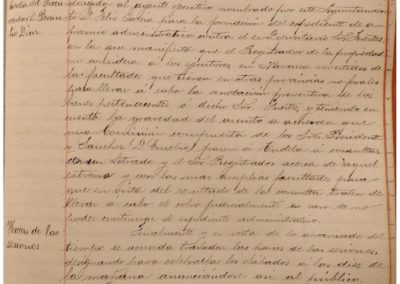 dor al agente ejecutivo nombrado por este Ayuntamien
to D. Felix Galeria para la formacion del expediente de a
premio administrativo contra el ex-Depositario Sor. Fuertes
en la que manifiesta que el Registrador de la propiedad
no considera á los ejecutivos en Navarra revestidos de
las facultades que tienen en otras provincias no forales
para llevar á cabo la anotacion preventiva de los
bienes pertenecientes á dicho Sor. Fuertes, y teniendo en
cuenta la gravedad del asunto se acuerda que
una Comision compuesta de los Sres. President
y Sanchez D. Eusebio pasen á Tudela á consultar
con un Letrado y el Sor. Registrador acerca de aquel
extremo y con las mas amplias facultades para
que en vista del resultado de la consulta traten de
llevar á cabo el cobro judicialmente si caso de no
poder continuar el expediente administrativo.
Horas de las
sesiones
Finalmente y en vista de lo avanzado del
tiempo se acuerda trasladar las horas de las sesiones,
designando para celebrarlas los Sábados á las diez
de la mañana anunciandose asi al público.